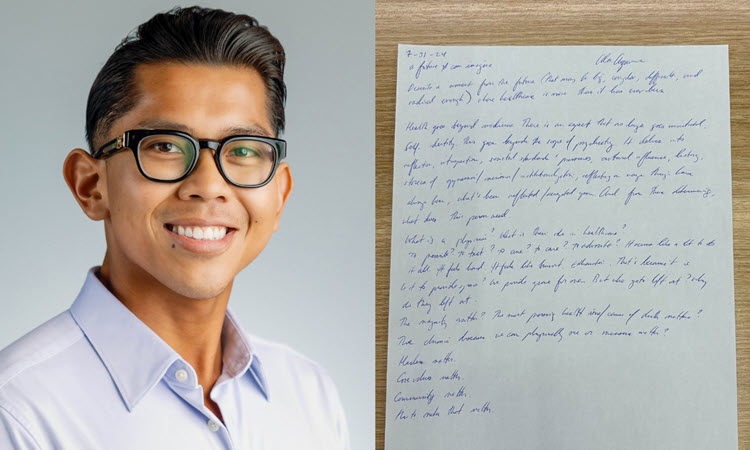 7-31-24
a future I can imagine
Describe a moment from the future (that may be big, complex, difficult, and
radical enough) where healthcare is more than it has ever been
Health goes beyond medicine. There is an aspect that no longer goes
Self. Identity. This goes beyond the scope of psychiatry. It delves into
reflection, introspection, societal standards & pressures, cultural influence, history,
stories of oppression/racism/, reflecting on ways things have
always been, what's been reflected/accepted upon. And from there determining,
what does this person need
What is a physician? What is their role in healthcare?
To provide? To treat? To cure? To care? To advocate? It seems like a lot to do
it all. It feels hard. It feels like burnout, exhaustion. That's because it is
Is it to provide space? We provide space for over. But who gets left out? Why
do they left out.
The majority matter? The most pressing health issues/causes of death matter?
The chronic diseases we can physically see or measure matter?
matter.
Core values matter.
Community matter.
to make that matter.